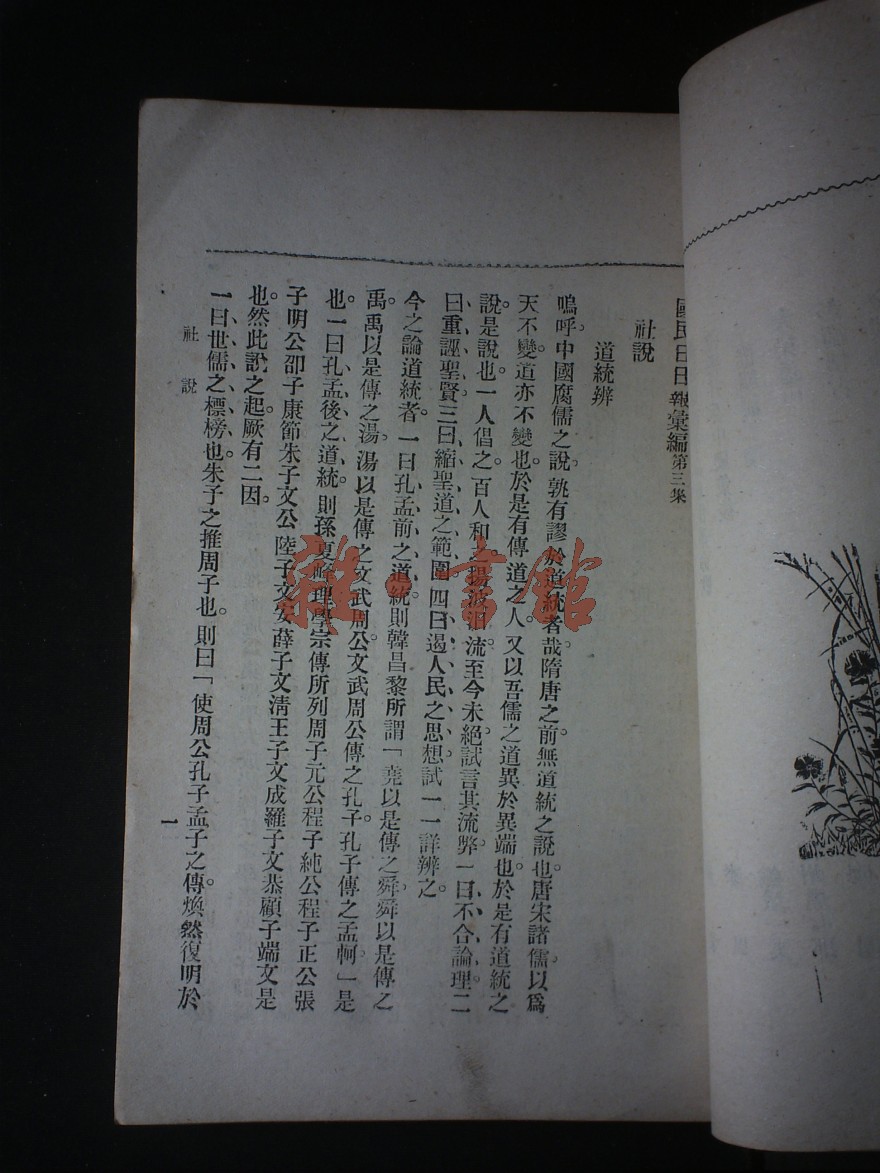 國民日日報彙編第三集
社說
道統辨
嗚呼。中國腐儒之說。孰有謬於道統者哉。隋唐之前。無道統之說也。唐宋諸儒以爲
天不變。道亦不變也。於是有傳道之人。又以吾儒之道異於異端也。於是有道統之
說。是說也。一人倡之。百人和之。揚波汨流。至今未絕。試言其流弊。一曰不合論理。二
曰重誣聖賢。三曰縮聖道之範圍。四曰遏人民之思想。試一一詳辨之。
今之論道統者。一曰孔孟前之道統。則韓昌黎所謂「堯以是傳之舜。舜以是傳之
禹。禹以是傳之湯。湯以是傳之文武周公。文武周公傳之孔子。孔子傳之孟軻」是
也。一曰孔孟後之道統。則孫夏峰理學宗傳所列周子元公程子純公程子正公張
子明公邵子康節朱子文公陸子文安薛子文淸王子文成羅子文恭顧子端文是
也。然此說之起。厥有二因。
一曰世儒之標榜也。朱子之推周子也。則曰「使周公孔子孟子之傳。煥然復明於
社說
一
雜·書館